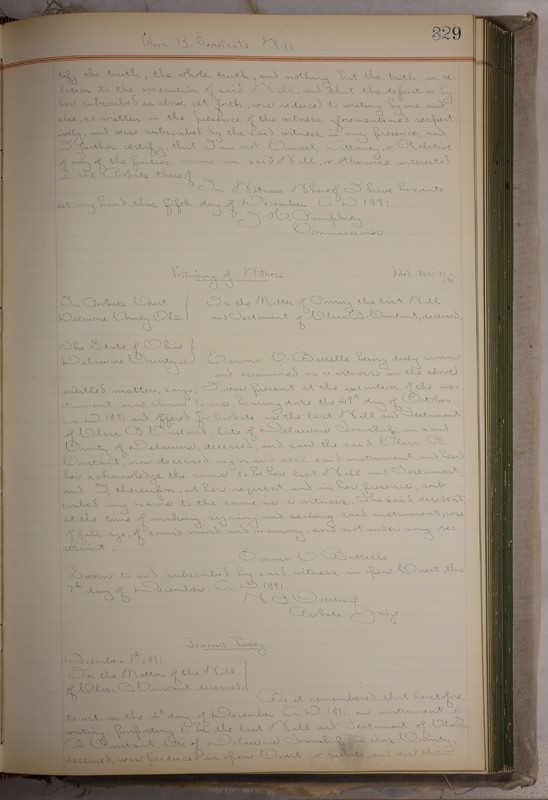 329
Clara B. Constant's Will
tify the truth, the whole truth, and nothing but the truth in re-
lation to the execution of said Will, and that the deposition by
her subscribed as above set forth, was reduced to writing by me and
also, as written in the presence of the witness aforementioned respect-
ively, and was subscribed by the said witness in my presence, and
I further certify that I am not Counsel, Attorney, or Relative
of any of the parties named in said Will, or otherwise interested
in the Probate thereof.
In Witness Whereof I have hereunto
set my hand this fifth day of December A.D. 1891.
Commissioner
Testimony of Witness
In Probate Court
Delaware County Ohio
In the Matter of Proving the Last Will
and Testament of Clara B. Constant, deceased
The State of Ohio
Delaware County, ss
Emma C. being duly sworn
and examined as a witness in the above
entitled matter, says, I was present at the execution of the ins-
trument now shown to me, bearing date the day of October
A.D. 1891 and offered for Probate as the last Will and Testament
of Clara B. Constant late of Delaware Township in said
County of Delaware, deceased, and saw the said Clara B.
Constant, now deceased sign and seal said instrument, and heard
her acknowledge the same to be her last Will and Testament,
and I thereupon, at her request, and in her presence, sub-
scribed my name to the same as a witness. The said decedent,
at the time of making, signing and sealing said instrument, was
of full age, of sound mind and memory, and not under any re-
straint.
Emma C.
Sworn to and subscribed by said witness in open Court, this
7th day of December A.D. 1891
Probate Judge
Journal Entry
December 1891
In the Matter of the Will
of Clara B. Constant deceased
Be it remembered, that heretofore,
to wit on the 2d day of December A.D. 1891, an instrument of
writing purporting to be the last Will and Testament of Clara
B. Constant late of Delaware Township in this County,
deceased, was produced in open Court for probate, and